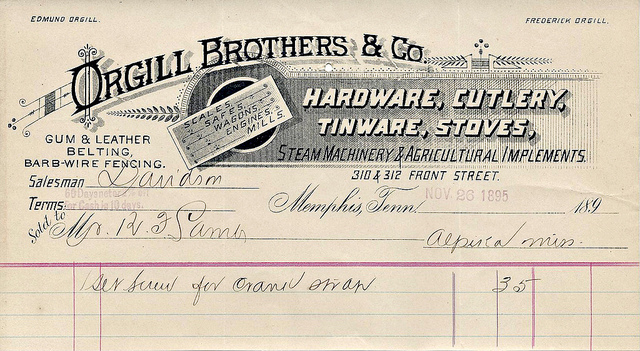 EDMUND ORGILL.
FREDERICK ORGILL.
ORGILL BROTHERS & CO.
SCALES,
SAFES,
WAGONS,
ENGINES,
MILLS.
HARDWARE, CUTLERY,
TINWARE, STOVES,
STEAM MACHINERY & AGRICULTURAL IMPLEMENTS.
310 & 312 FRONT STREET.
GUM & LEATHER
BELTING,
BARB-WIRE FENCING.
Salesman Davidson
Terms
for Cash in 10 days.
Memphis, Tenn. NOV. 26 1895 189
Sold to Mr.
miss.
1 set screw for 35